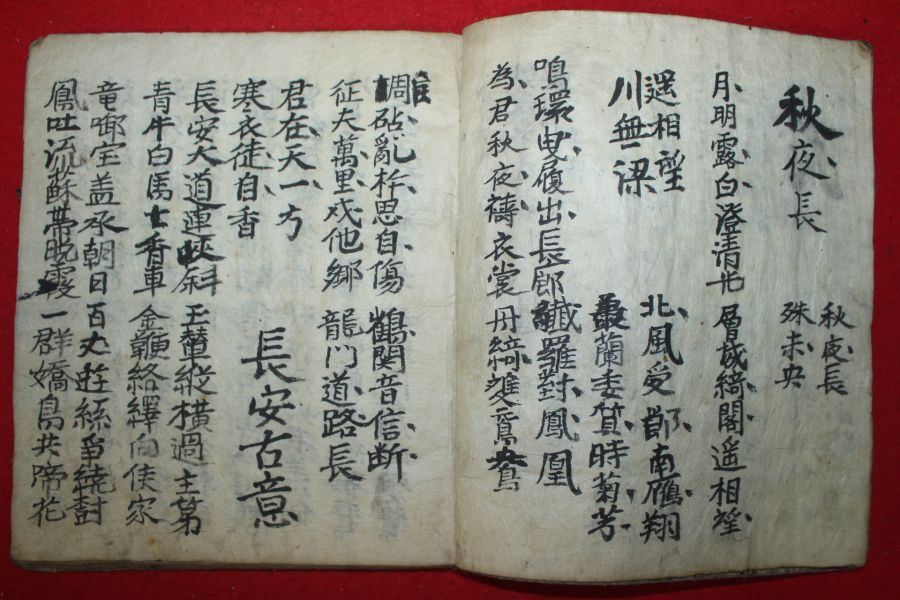 秋夜長
秋夜長
殊未央
月明露白澄清光 層城綺閣遥相望
遥相望
川無梁
北風受節南雁翔
叢蘭委質時菊芳
鳴環曳履出長郎 纎羅對鳳凰
為君秋夜擣衣裳 丹綺雙鴛鴦
調砧亂杵思自傷 鶴関音信断
征夫萬里戍他鄉 龍門道路長
君在天一方
寒衣徒自香
長安古意
長安大道連狹斜 玉輦縱横過主第
青牛白馬七香車 金鞭絡繹向侯家
竜啣宝盖承朝日 百丈遊絲争繞樹
鳳吐流蘇帯晚霞 一群嬌鳥共啼花